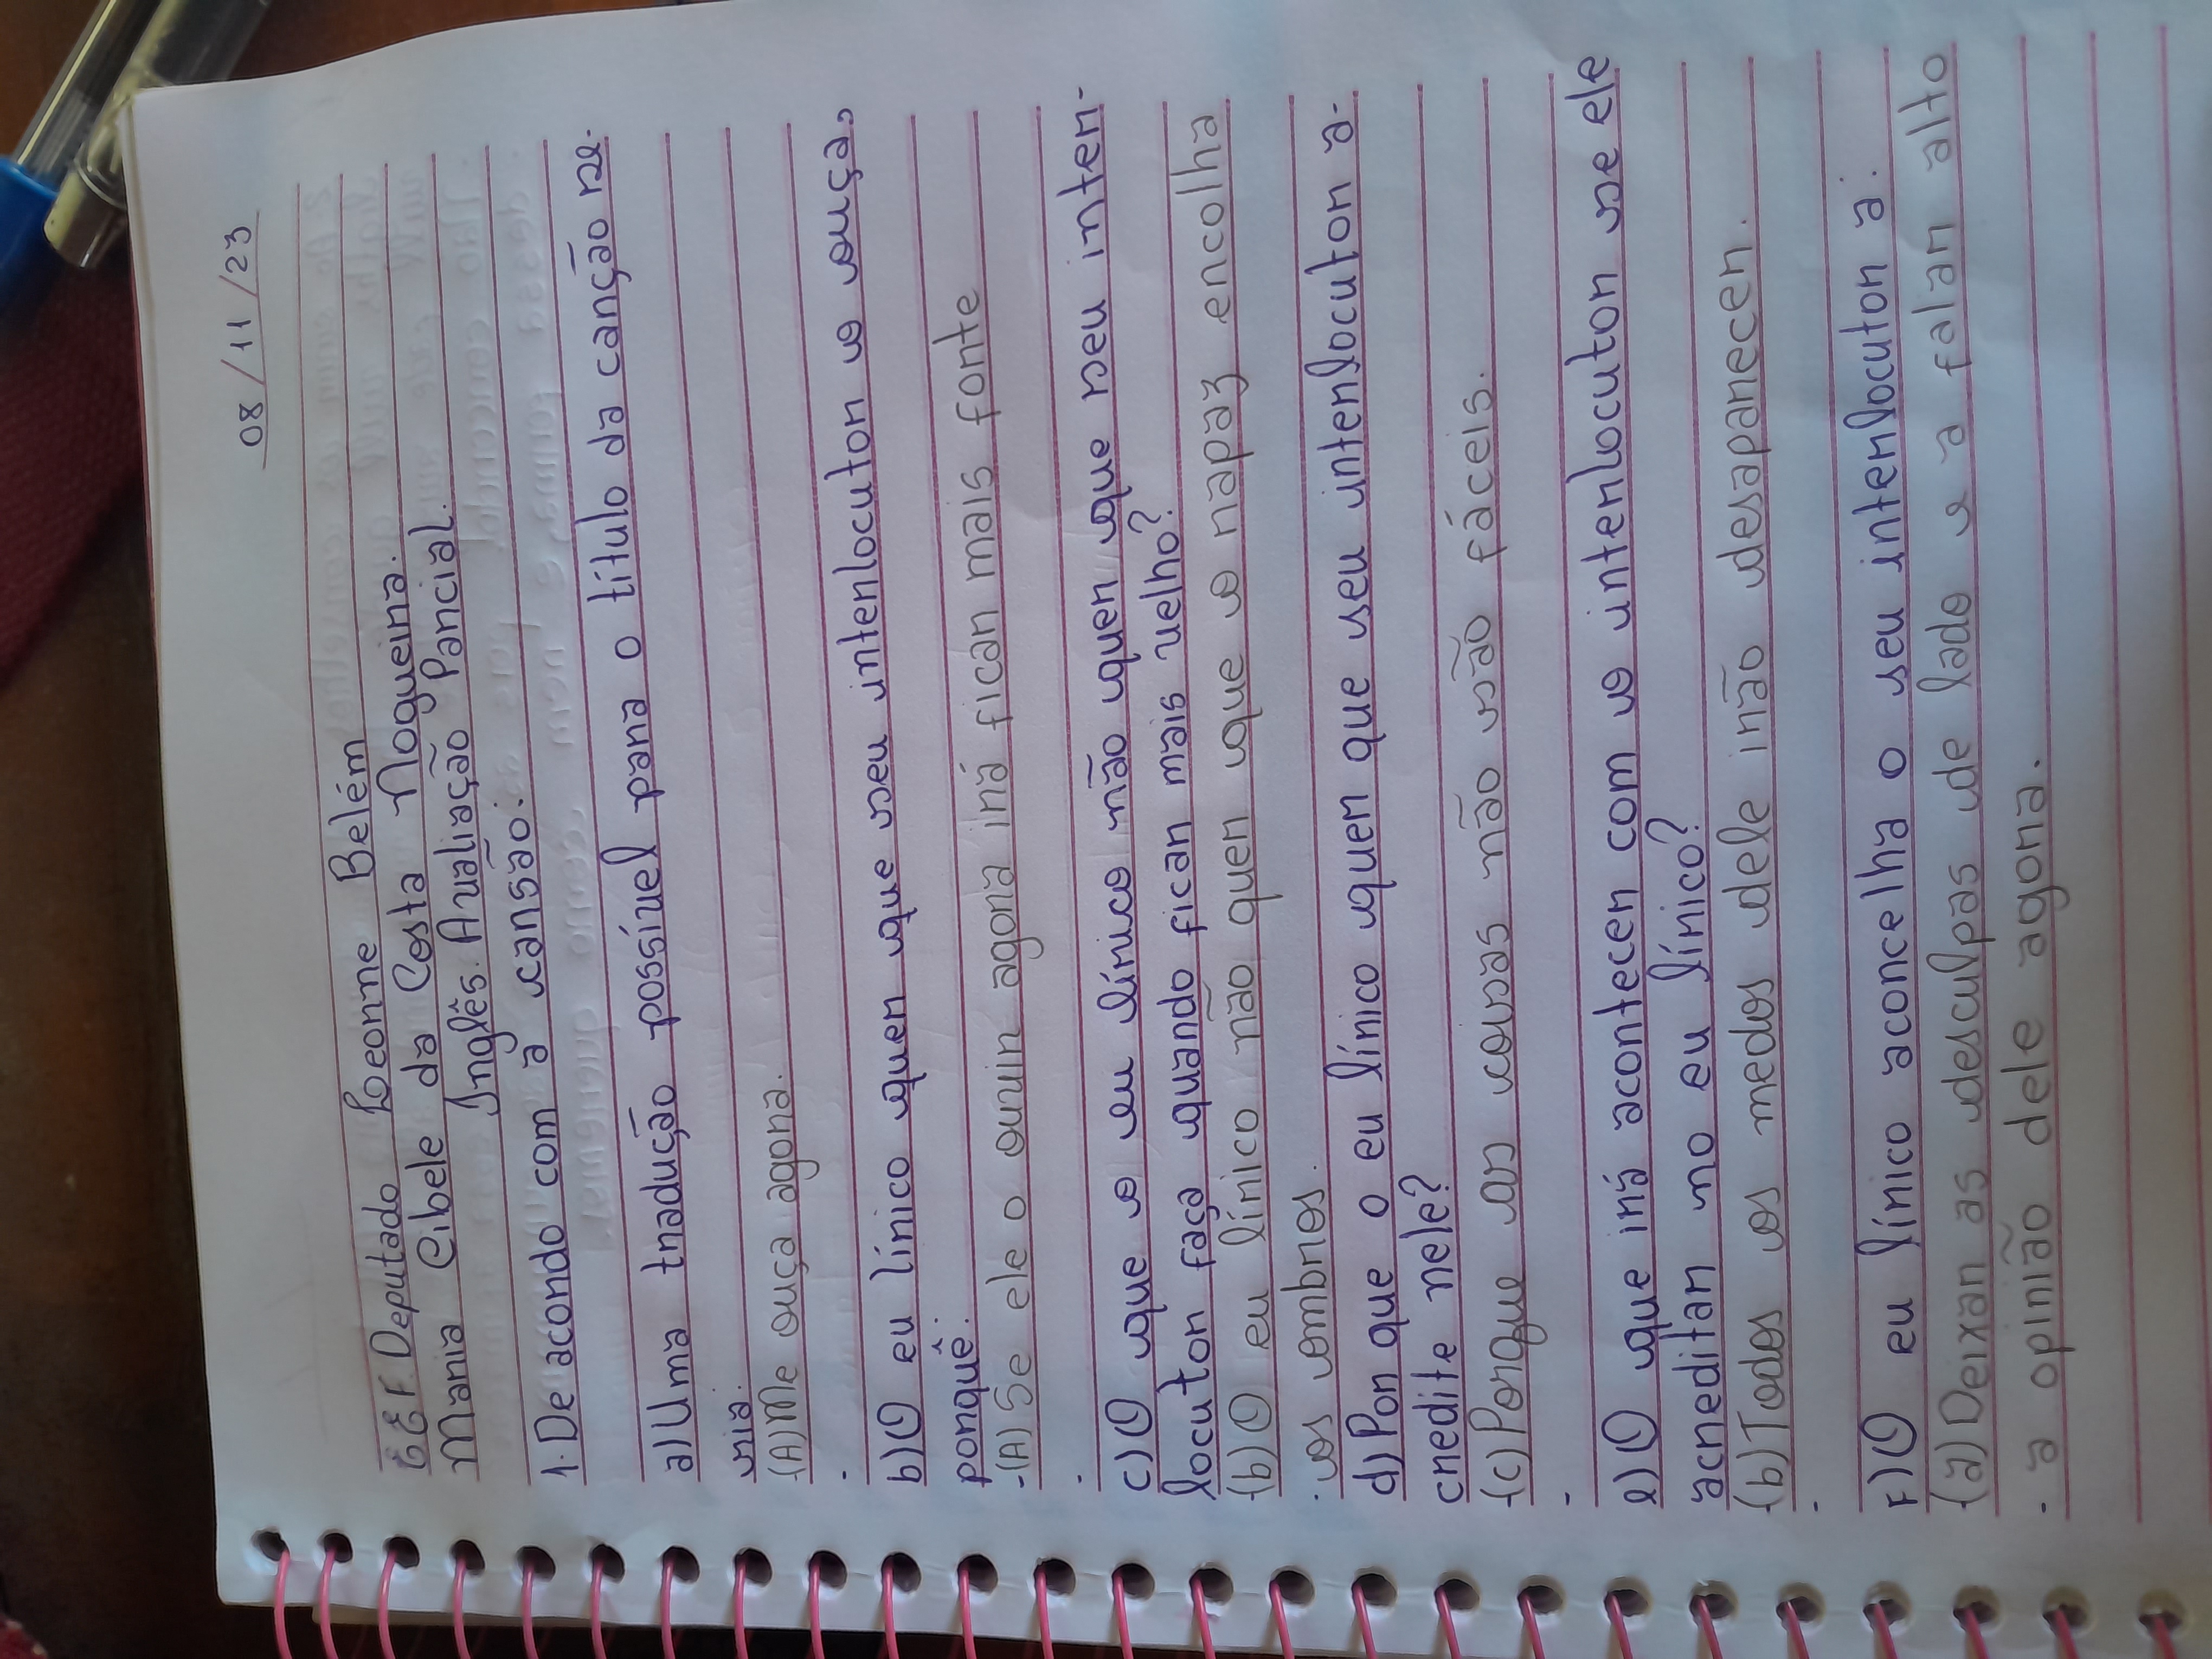 08/11/23
EEF. Deputado Leorne Belém
Maria Cibele da Costa Nogueira.
Inglês. Avaliação Parcial.
1. De acordo com a cansão:
a) Uma tradução possível para o título da canção se-
ria:
(A) Me ouça agora.
-
b) O eu lírico quer que seu interlocutor o ouça,
porquê:
-(A) Se ele o ouvir agora irá ficar mais forte
-
c) O que o eu lírico não quer que seu inter-
locutor faça quando ficar mais velho?
(b) O eu lírico não quer que o rapaz encolha
. os ombros.
d) Por que o eu lírico quer que seu interlocutor a-
credite nele?
(c) Porque as coisas não são fáceis.
-
e) O que irá acontecer com o interlocutor se ele
acreditar no eu lírico?
(b) Todos os medos dele irão desaparecer.
-
F) O eu lírico aconcelha o seu interlocutor a:
(a) Deixar as desculpas de lado e a falar alto
- a opinião dele agora.